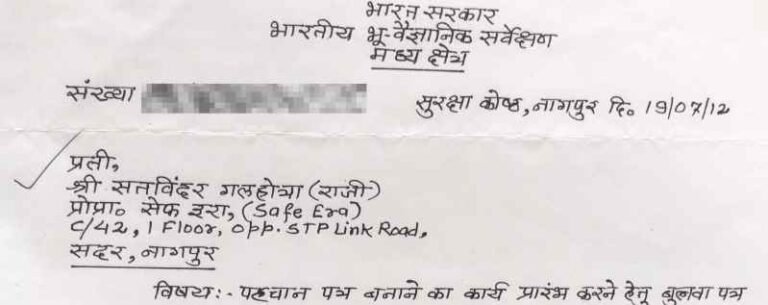 भारत सरकार
भारतीय भू-वैज्ञानिक सर्वेक्षण
मध्य क्षेत्र
संख्या
सुरक्षा कोष्ठ, नागपुर दि॰ 19/07/12
प्रती,
श्री सतविंदर गलहोत्रा (राजी)
प्रोप्रा॰ सेफ इरा, (Safe Era)
C/42, 1 Floor, Opp. STP Link Road,
सदर, नागपुर
विषय:- पहचान पत्र बनाने का कार्य प्रारंभ करने हेतु बुलावा पत्र